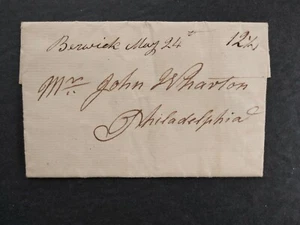 Berwick May 24th 12½
Mr. John Wharton
Philadelphia